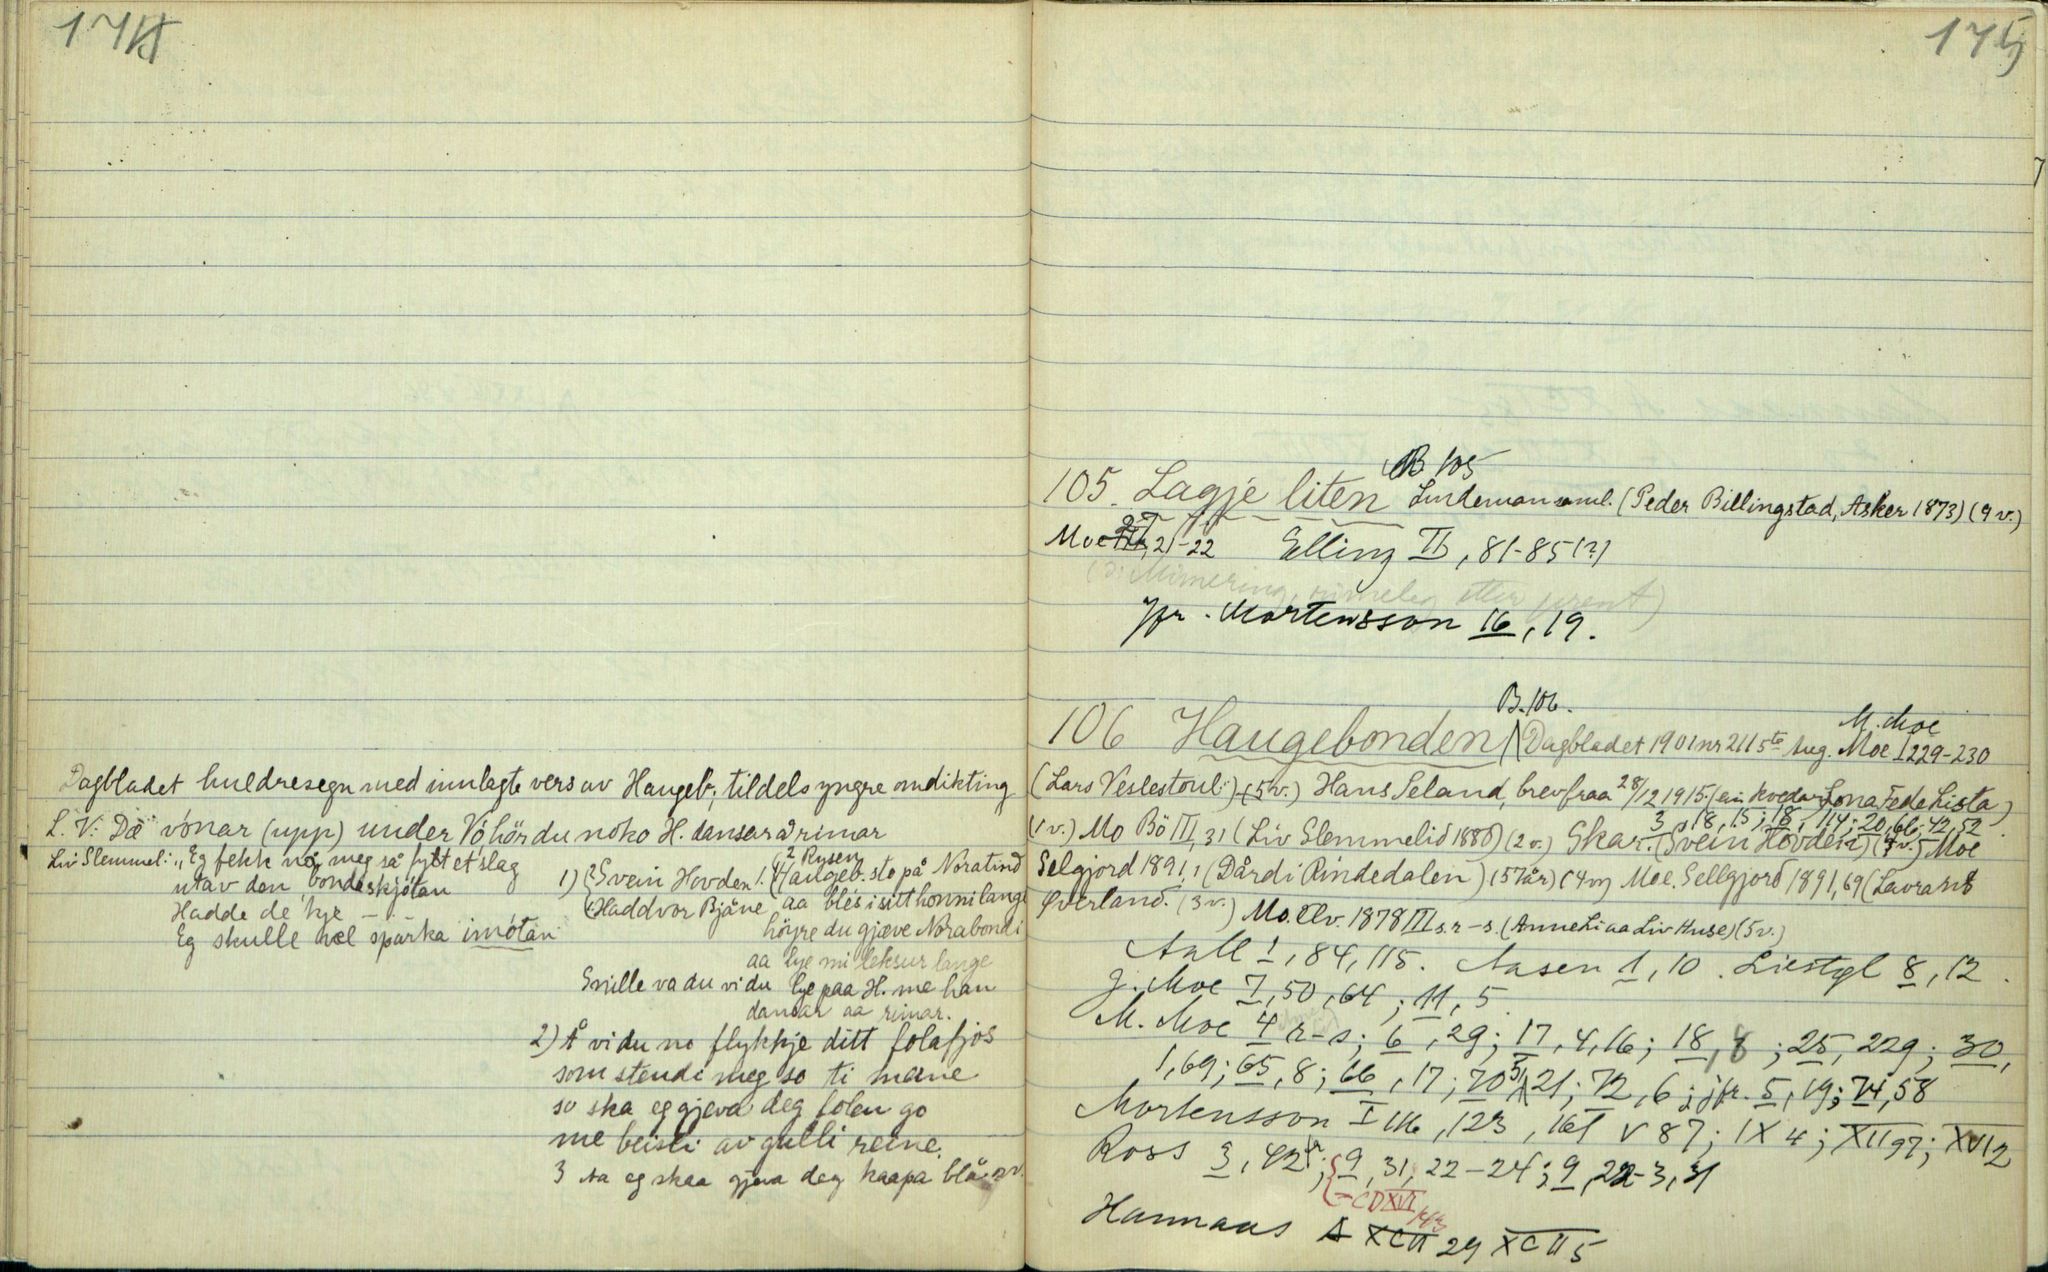 174
Dagbladet huldresegn med innlagte vers av Haugeb., tildels yngre omdikting
L. V: Dæ vónar (upp) under Vó hör du noko H. dansar å rimar
Liv Slemmel: "Eg fekk nó meg så fytt et slag
utav den bondeskjøtan
Hadde de kje —
Eg skulle hæl sparka imótan
1) Svein Hovden 1. Haugeb. sto på Noratind
2 Rysen
Haddvor Bjåne aa blés i sitt honni lange
höyre du gjæve Norabondi
aa lye mi leksur lange
Snille va du vi du lye paa H. me han
dansar aa rimar.
2) Å vi du no flykkje ditt folafjos
som stende meg so ti meine
so ska eg gjeva deg folen go
me beisli av gulli reine.
3 Aa eg skaa gjeva deg kaapa blå osv.
175
B 105
105. Lagje liten Lindeman saml. (Peder Billingstad, Asker 1873) (9 v.)
Moe 21-22 Elling II, 81-85 (?)
(Mimering, rimeleg etter prent)
Jfr. Mortensson 16, 19.
B. 106.
106 Haugebonden Dagbladet 1901 nr 211 5te Aug. M. Moe Moe I 229-230
(Lars Veslestoul) (5 v.) Hans Seland, brev fraa 28/12 1915 (ein kvedar Lona Fede Lista)
3, 18, 15; 18, 114; 20, 66; 42, 52.
(1 v.) Mo Bö III, 31 (Liv Slemmelid 1880) (2 v.) Skar. (Svein Hovden) (7 v.) Moe
Selgjord 1891, 1 (Dårdi Rindedalen) (57 år) (4 v) Moe. Sellgjord 1891, 69 (Lavrans
Överland. (3 v.) Mo. Elv. 1878 III s. r-s. (Anne Li aa Liv Huse) (5 v.)
Aall 1, 84, 115. Aasen 1, 10. Liestøl 8, 12.
J. Moe 7, 50, 64; 11, 5
M. Moe 4 r-s; 6, 29; 17, 4, 16; 18, 8; 25, 229; 30,
1, 69; 65, 8; 66, 17; 70 5, 21; 72, 6; jfr. 5, 19; 74, 58
Mortensson I 116, 123, 161 V 87; IX 4; XII 97; XVI 2
Ross 3, 42; 9, 31, 22-24; 9, 22-3, 31
= CD XVI 143
Hannaas A XCII 29 XCII 5